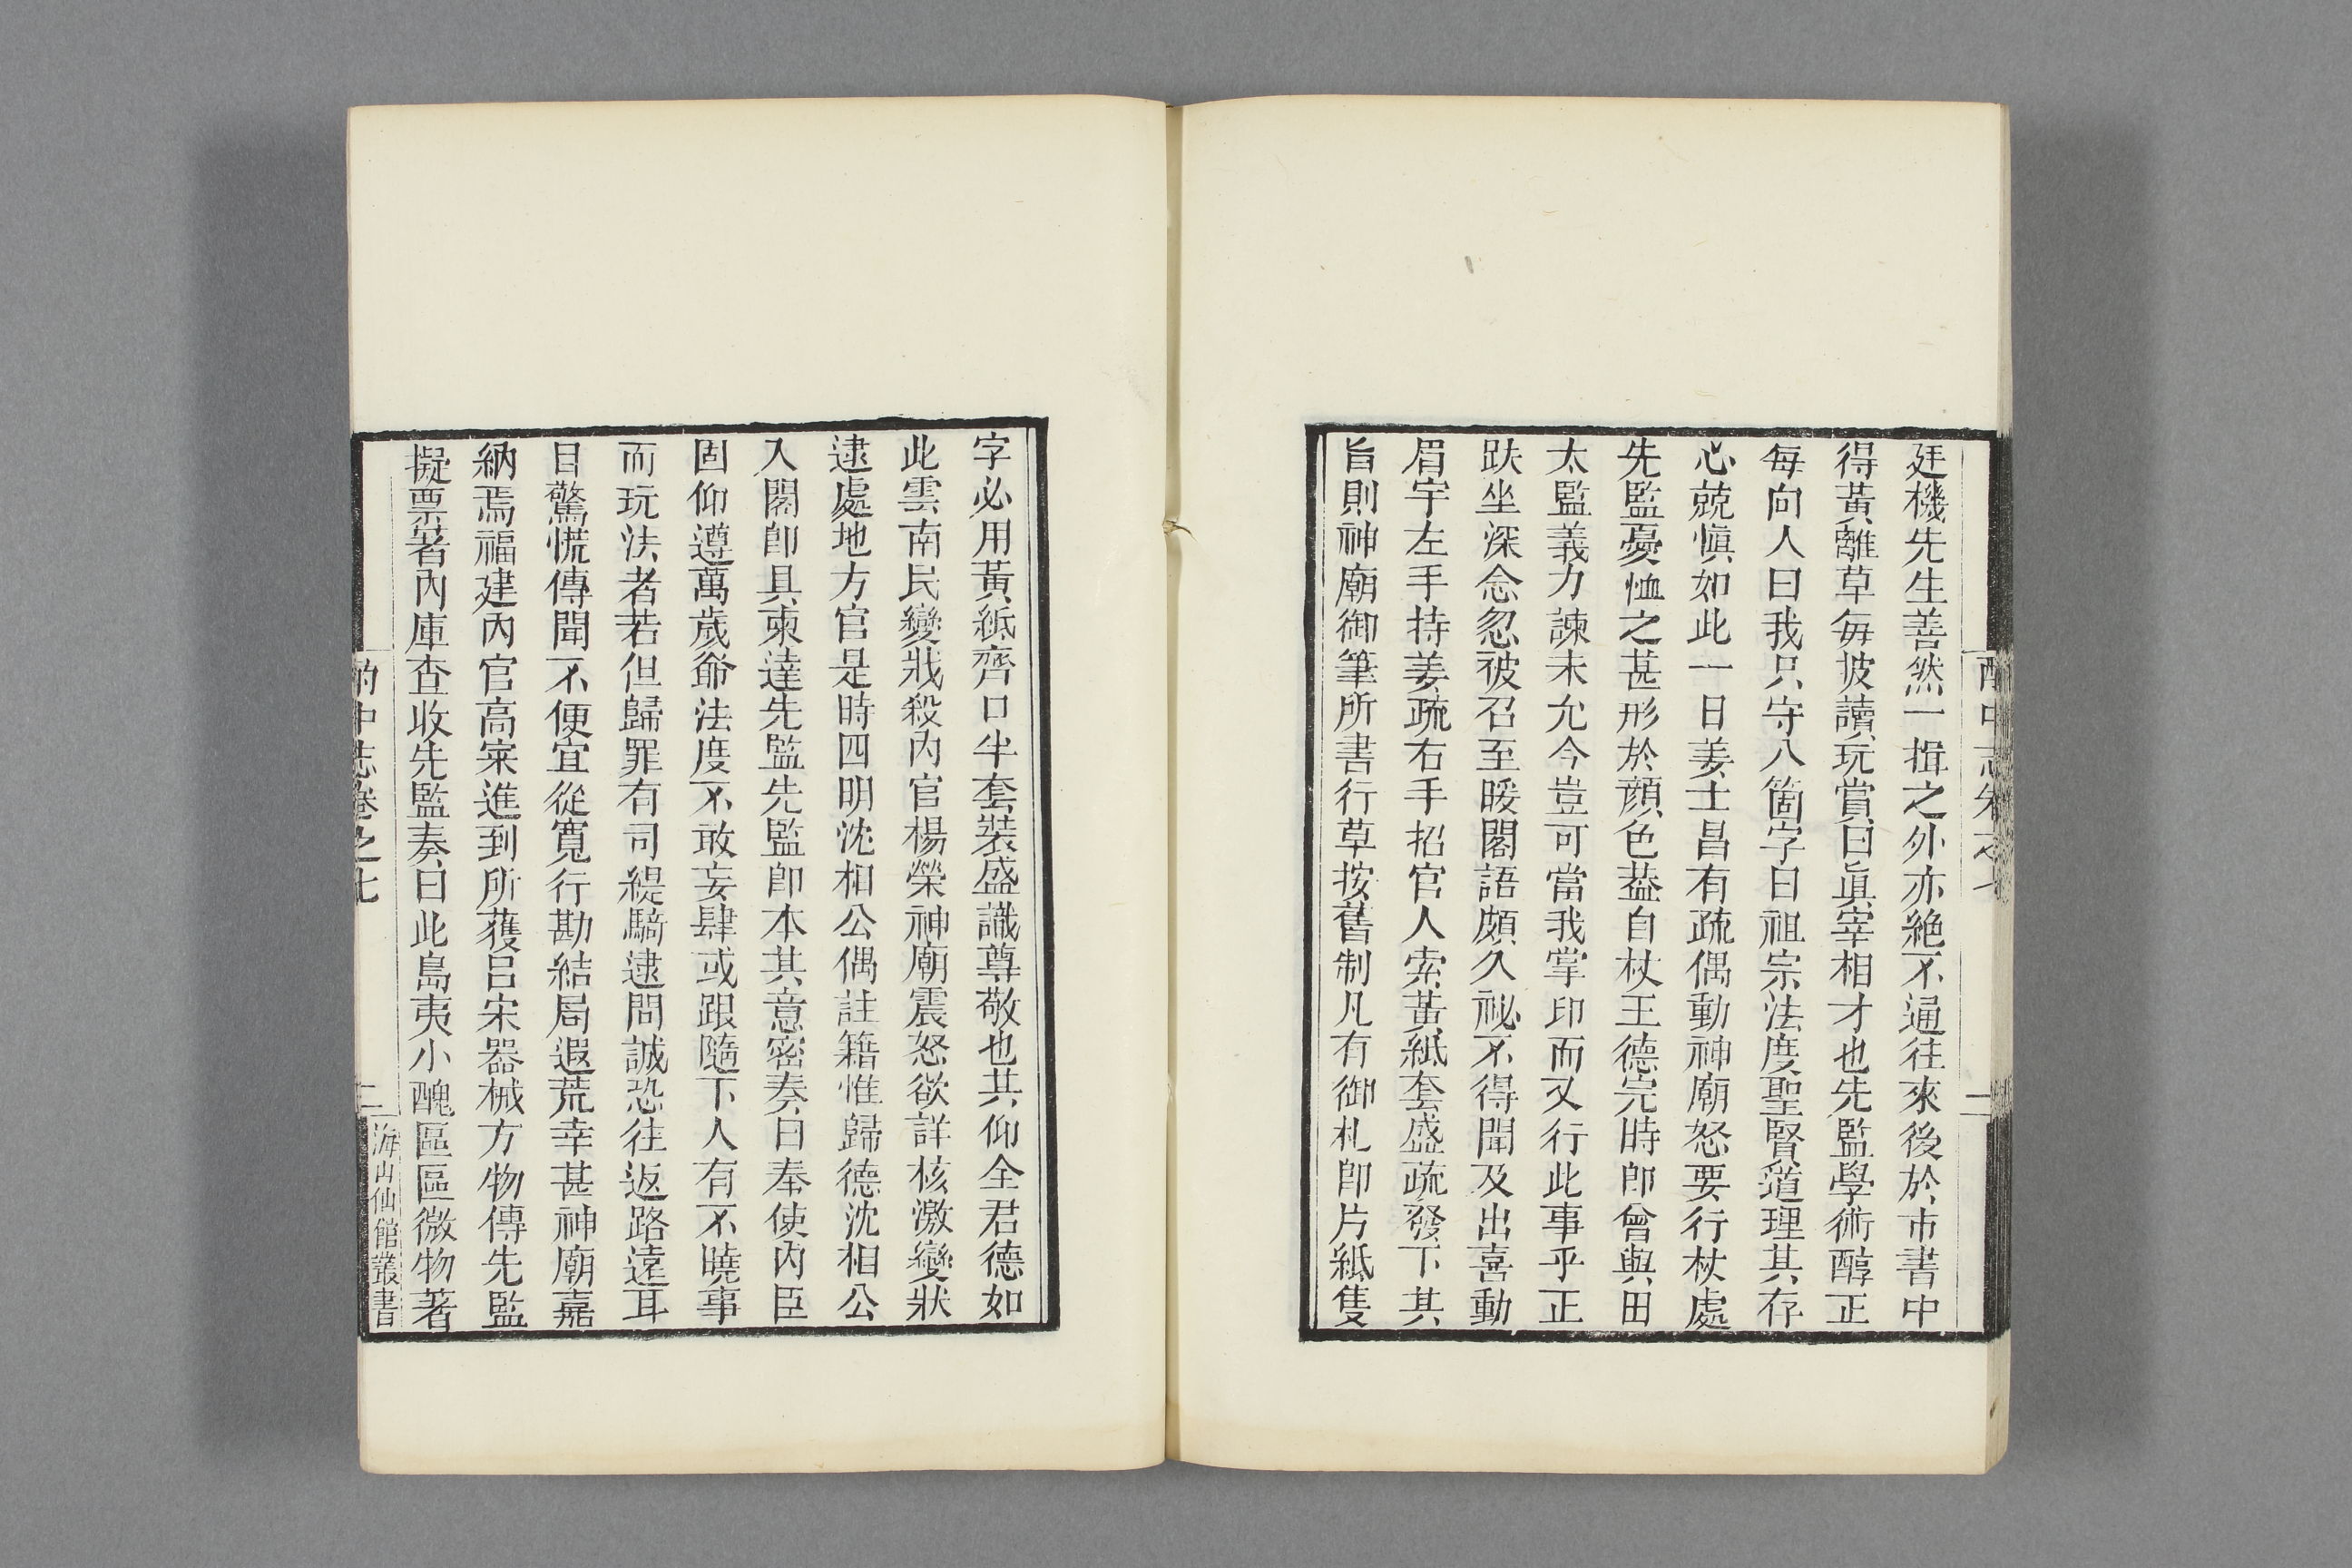 酌中志卷之七
二
廷機先生善然一揖之外亦絶不通往來後於市書中
得黃離草每披讀玩賞曰眞宰相才也先監學術醇正
每向人曰我只守八箇字曰祖宗法度聖賢道理其存
心兢愼如此一日姜士昌有疏偶動神廟怒要行杖處
先監憂恤之甚形於顏色葢自杖王德完時卽曾與田
太監義力諫未允今豈可當我掌印而又行此事乎正
趺坐深念忽被召至暖閣語頗久祕不得聞及出喜動
眉宇左手持姜疏右手招官人索黃紙套盛疏發下其
旨則神廟御筆所書行草按舊制凡有御札卽片紙隻
字必用黃紙齊口半套裝盛識尊敬也其仰全君德如
此雲南民變戕殺內官楊榮神廟震怒欲詳核激變狀
逮處地方官是時四明沈相公偶註籍惟歸德沈相公
入閣卽具柬達先監先監卽本其意密奏曰奉使內臣
固仰遵萬歲爺法度不敢妄肆或跟隨下人有不曉事
而玩法者若但歸罪有司緹騎逮問誠恐往返路遠耳
目驚慌傳聞不便宜從寬行勘結局遐荒幸甚神廟嘉
納焉福建內官高寀進到所獲呂宋器械方物傳先監
擬票著內庫查收先監奏曰此島夷小醜區區微物著
酌中志卷之七
二
海山仙館叢書